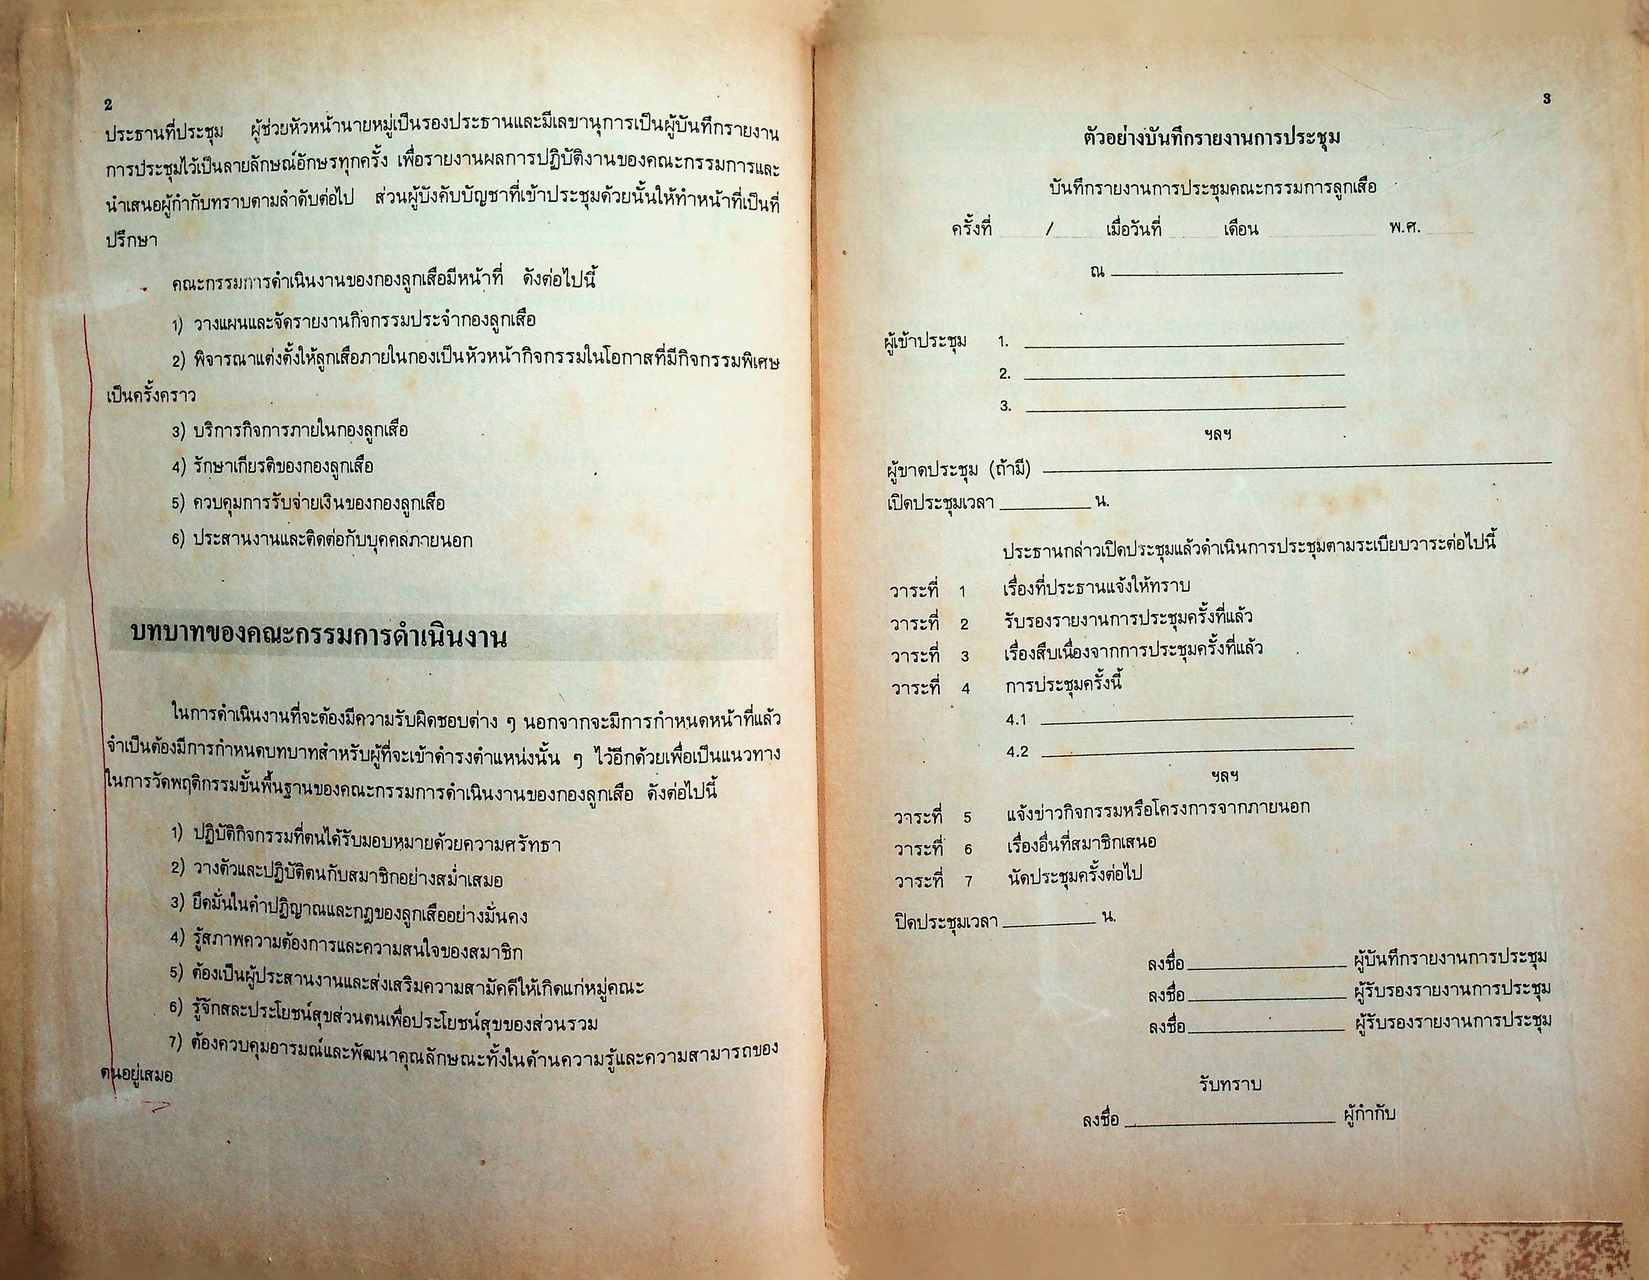 2
ประธานที่ประชุม ผู้ช่วยหัวหน้านายหมู่เป็นรองประธานและมีเลขานุการเป็นผู้บันทึกรายงาน
การประชุมไว้เป็นลายลักษณ์อักษรทุกครั้ง เพื่อรายงานผลการปฏิบัติงานของคณะกรรมการและ
นำเสนอผู้กำกับทราบตามลำดับต่อไป ส่วนผู้บังคับบัญชาที่เข้าประชุมด้วยนั้นให้ทำหน้าที่เป็นที่
ปรึกษา
คณะกรรมการดำเนินงานของกองลูกเสือมีหน้าที่ ดังต่อไปนี้
1) วางแผนและจัดรายงานกิจกรรมประจำกองลูกเสือ
2) พิจารณาแต่งตั้งให้ลูกเสือภายในกองเป็นหัวหน้ากิจกรรมในโอกาสที่มีกิจกรรมพิเศษ
เป็นครั้งคราว
3) บริการกิจการภายในกองลูกเสือ
4) รักษาเกียรติของกองลูกเสือ
5) ควบคุมการรับจ่ายเงินของกองลูกเสือ
6) ประสานงานและติดต่อกับบุคคลภายนอก
บทบาทของคณะกรรมการดำเนินงาน
ในการดำเนินงานที่จะต้องมีความรับผิดชอบต่าง ๆ นอกจากจะมีการกำหนดหน้าที่แล้ว
จำเป็นต้องมีการกำหนดบทบาทสำหรับผู้ที่จะเข้าดำรงตำแหน่งนั้น ๆ ไว้อีกด้วยเพื่อเป็นแนวทาง
ในการวัดพฤติกรรมขั้นพื้นฐานของคณะกรรมการดำเนินงานของกองลูกเสือ ดังต่อไปนี้
1) ปฏิบัติกิจกรรมที่ตนได้รับมอบหมายด้วยความศรัทธา
2) วางตัวและปฏิบัติตนกับสมาชิกอย่างสม่ำเสมอ
3) ยึดมั่นในคำปฏิญาณและกฎของลูกเสืออย่างมั่นคง
4) รู้สภาพความต้องการและความสนใจของสมาชิก
5) ต้องเป็นผู้ประสานงานและส่งเสริมความสามัคคีให้เกิดแก่หมู่คณะ
6) รู้จักสละประโยชน์สุขส่วนตนเพื่อประโยชน์สุขของส่วนรวม
7) ต้องควบคุมอารมณ์และพัฒนาคุณลักษณะทั้งในด้านความรู้และความสามารถของ
ตนอยู่เสมอ
3
ตัวอย่างบันทึกรายงานการประชุม
บันทึกรายงานการประชุมคณะกรรมการลูกเสือ
ครั้งที่ / เมื่อวันที่ เดือน พ.ศ.
ณ
ผู้เข้าประชุม 1.
2.
3.
ฯลฯ
ผู้ขาดประชุม (ถ้ามี)
เปิดประชุมเวลา น.
ประธานกล่าวเปิดประชุมแล้วดำเนินการประชุมตามระเบียบวาระต่อไปนี้
วาระที่ 1 เรื่องที่ประธานแจ้งให้ทราบ
วาระที่ 2 รับรองรายงานการประชุมครั้งที่แล้ว
วาระที่ 3 เรื่องสืบเนื่องจากการประชุมครั้งที่แล้ว
วาระที่ 4 การประชุมครั้งนี้
4.1
4.2
ฯลฯ
วาระที่ 5 แจ้งข่าวกิจกรรมหรือโครงการจากภายนอก
วาระที่ 6 เรื่องอื่นที่สมาชิกเสนอ
วาระที่ 7 นัดประชุมครั้งต่อไป
ปิดประชุมเวลา น.
ลงชื่อ ผู้บันทึกรายงานการประชุม
ลงชื่อ ผู้รับรองรายงานการประชุม
ลงชื่อ ผู้รับรองรายงานการประชุม
รับทราบ
ลงชื่อ ผู้กำกับ